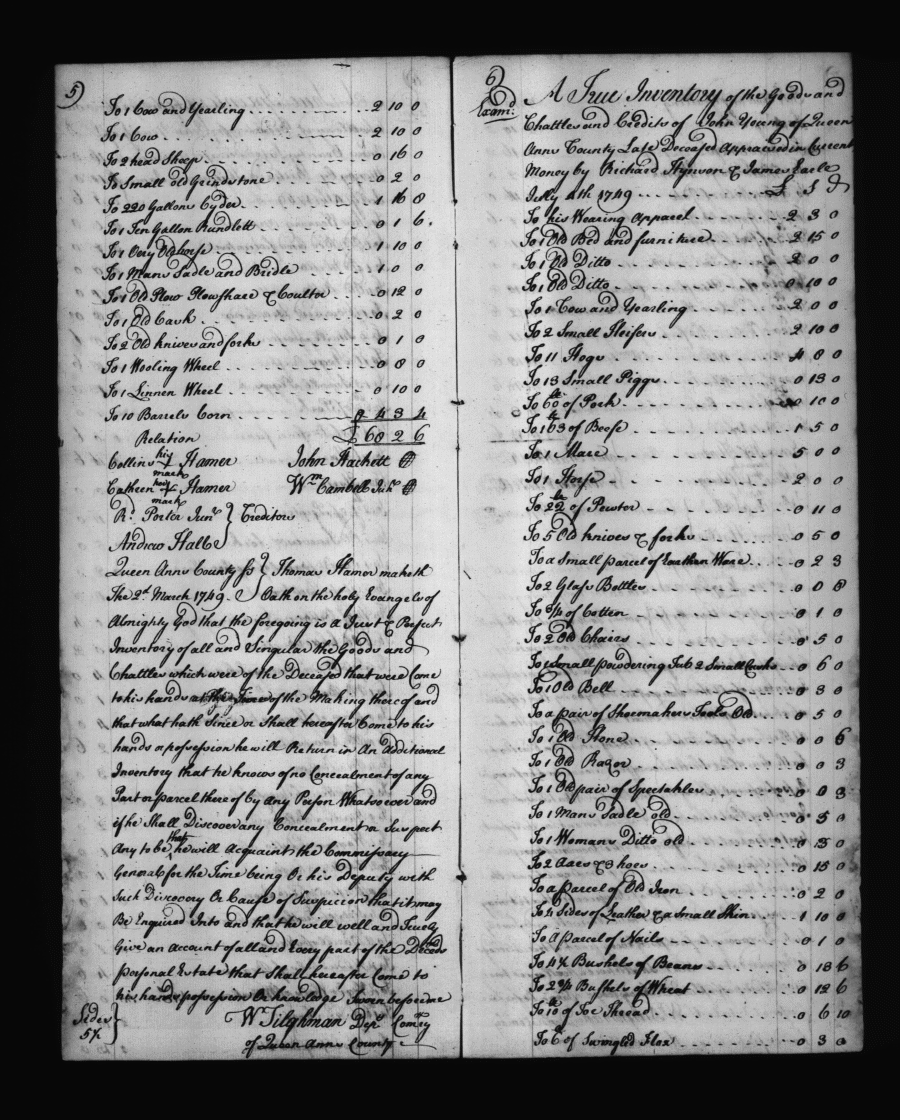 5)
To 1 Cow and Yearling . . . 2 10 0
To 1 Cow . . . 2 10 0
To 2 head Sheep . . . 0 16 0
To Small old Grindstone . . . 0 2 0
To 220 Gallons Cyder . . . 1 16 8
To 1 Ten Gallon Rundlett . . . 0 1 6
To 1 Very Old horse . . . 1 10 0
To 1 Mans Sadle and Bridle . . . 1 0 0
To 1 Old Plow Plowshare & Coulter . . . 0 12 0
To 1 Old Cask . . . 0 2 0
To 2 Old knives and forks . . . 0 1 0
To 1 Wooling Wheel . . . 0 8 0
To 1 Linnen Wheel . . . 0 10 0
To 10 Barrels Corn . . . 4 3 4
Relation £ 60 2 6
Collins his mark Hamer John Hackett
Catheren her mark Hamer Wm Cambell Junr
Rd. Porter Junr } Creditors
Andrew Hall
Queen Anns County ss { Thomas Hamer maketh
The 2d. March 1749. Oath on the holy Evangels of
Almighty God that the foregoing is a Just & Perfect
Inventory of all and Singular the Goods and
Chattles which were of the Deceased that were Come
to his hands at the Time of the Making thereof and
that what hath Since or Shall hereafter Come to his
hands or possession he will Return in An Additional
Inventory that he knows of no Concealment of any
Part or parcel there of by Any Person Whatsoever and
if he Shall Discover any Concealment or Suspect
Any to be, that he will Acquaint the Commissary
General for the Time being Or his Deputy with
Such Discovery Or Cause of Suspicion that it may
Be Enquired Into and that he will well and Truely
Give an Account of all and Every part of the Deceds
personal Estate that Shall hereafter Come to
his hands possession Or knowledge Sworn before me
Sides 57 } W Tilghman Depr. Comry
of Queen Anns County
6)
Examd: A True Inventory of the Goods and
Chattles and Credits of John Young of Queen
Anns County Late Deceased Appraised in Current
Money by Richard Hynson & James Earle
July 4th 1749 . . . £ S D
To his Wearing Apparel . . . 2 3 0
To 1 Old Bed and furniture . . . 2 15 0
To 1 Old Ditto . . . 2 0 0
To 1 Old Ditto . . . 0 10 0
To 1 Cow and Yearling . . . 2 0 0
To 2 Small Heifers . . . 2 10 0
To 11 Hogs . . . 4 8 0
To 13 Small Piggs . . . 0 13 0
To 60 lb of Pork . . . 0 10 0
To 163 lb of Beefe . . . 1 5 0
To 1 Mare . . . 5 0 0
To 1 Horse . . . 2 0 0
To 22 lb of Pewter . . . 0 11 0
To 5 Old knives & forks . . . 0 5 0
To a Small parcel of Earthen Ware . . . 0 2 3
To 2 Glass Bottles . . . 0 0 8
To 3/4 of Cotton . . . 0 1 0
To 2 Old Chairs . . . 0 5 0
To 1 Small powdering Tub 2 Small Casks . . . 0 6 0
To 1 Old Bell . . . 0 3 0
To a pair of Shoemakers Tools Old . . . 0 5 0
To 1 Old Hone . . . 0 0 6
To 1 Old Razor . . . 0 0 3
To 1 Old pair of Spectakles . . . 0 0 3
To 1 Mans Sadle old . . . 0 5 0
To 1 Womans Ditto old . . . 0 15 0
To 2 Axes & 3 hoes . . . 0 15 0
To a Parcel of Old Iron . . . 0 2 0
To 4 Sides of Leather & a Small Skin . . . 1 10 0
To A Parcel of Nails . . . 0 1 0
To 4 1/2 Bushels of Beans . . . 0 13 6
To 2 3/4 Bushels of Wheat . . . 0 12 6
To 10 lb of Toe Thread . . . 0 6 10
To 6 lb of Swingled Flax . . . 0 3 0